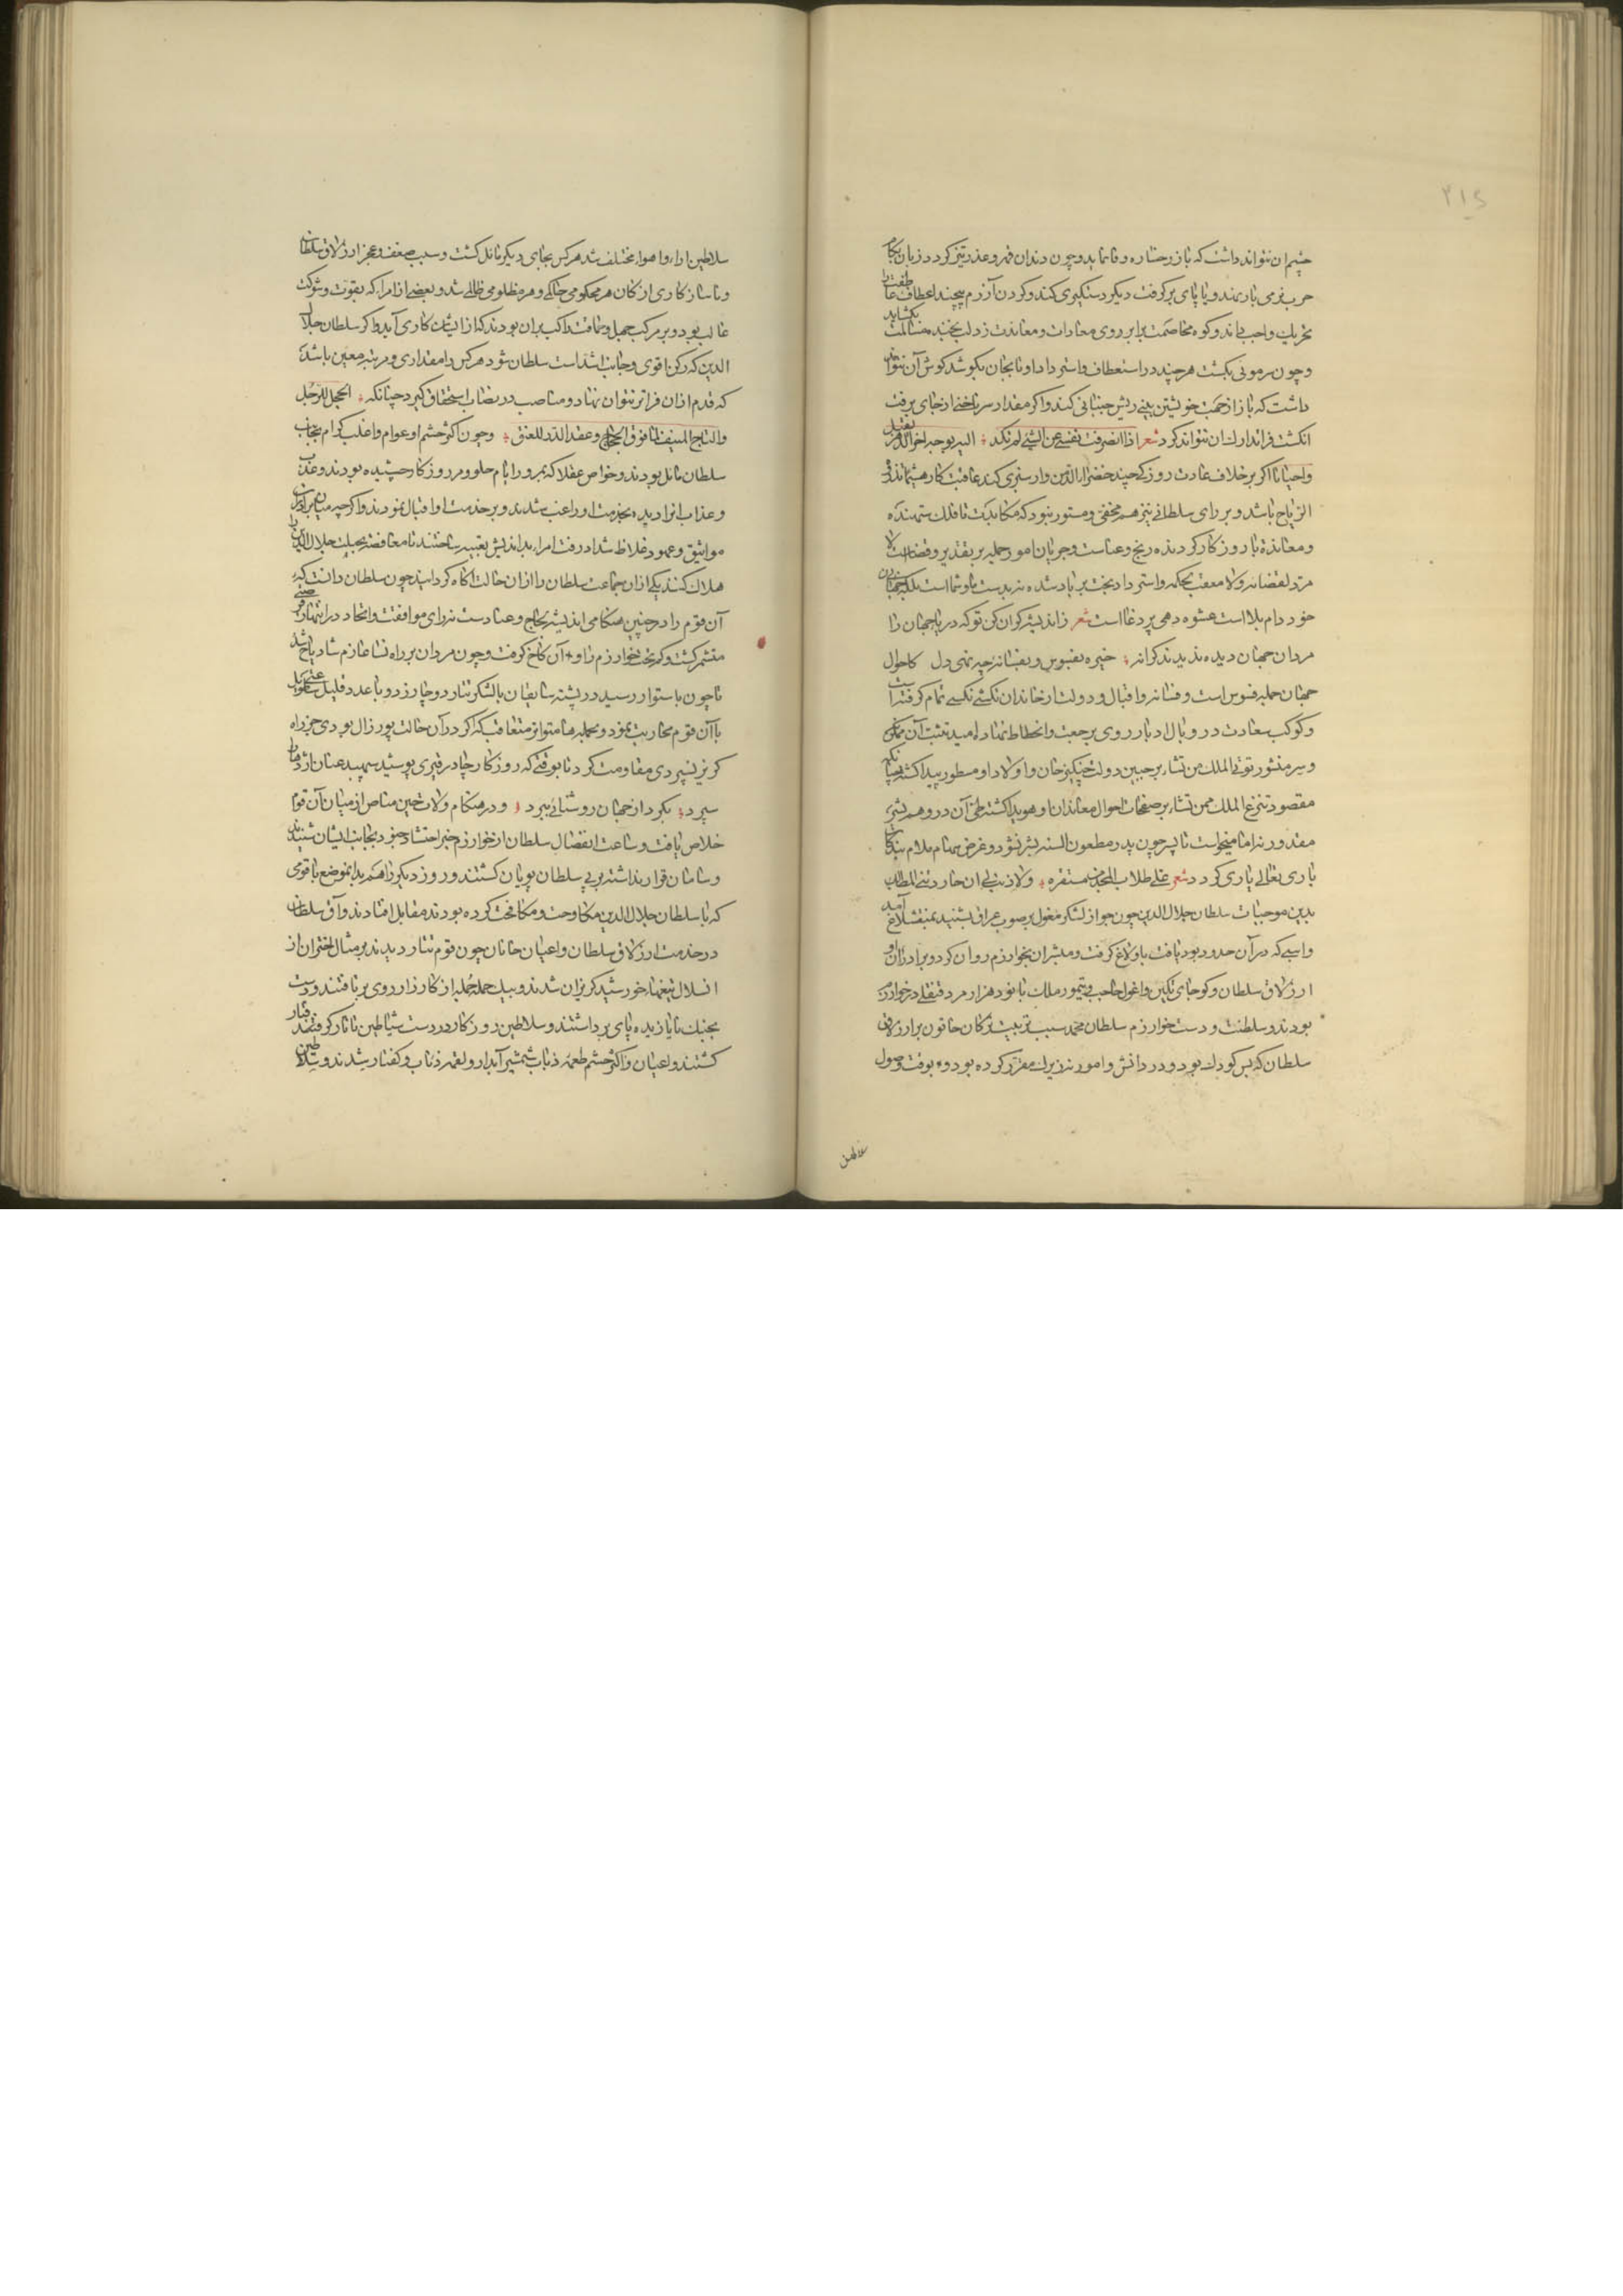 ۳۱۵
چشم ان نتواند داشت که باز رخساره وفا نماید و چون دندان قهر و عذر تیز کرد و زبان بکام
حرب نرمی باز بندد و یا پای بر گرفت دیگر دستگیری کند و گردن آزرم پیچند اعطاف عاطفت را
تحریک واجب داند و کوه مخاصمت برابر روی معادات و معاندت ز دلب بخنده مسالمت بگشاید
و چون سر مونی بگشت هرچند در استعطاف و استرداد او تا بجان بکوشد گوش آن نتوان
داشت که باز از جهت خویشتن بینی ریش جنبانی کند و اگر مقدار سر ناخنی از جای برفت
انگشت فرا تدارک ان نتواند کرد شعر اذا انصرفت نفسی عن الشئ لم تکد الیه بوجه اخر الدهر تقبل
و احیانا اگر بر خلاف عادت روزکی چند خضراء الدمن وار سبزی کند عاقبت کار هشیما تذروه
الریاح باشد و بر رای سلطانی نیز هم مخفی و مستور نبود که مکابدت با فلک ستمنده
و معاندة با روزگار گردنده رنج و عناست و جریان امور جمله بر تقدیر و قضاست لا
مرد لقضائه و لا معقب لحکمه و استرداد بخت بر باد شده نه بدست ما و شما است بلکه جهان
خود دام بلا است عشوه دهی پر دغا است شعر زاندیشه گران کن تو که دریا جهان را
مردان جهان دیده ندیدند کرانه خیره بفسوس و بفسانه چه نهی دل کاحوال
جهان جمله فسوس است و فسانه و اقبال و دولت از خاندان تکشی نکسی تمام گرفته است
و کوکب سعادت در وبال ادبار روی برجعت و انحطاط نهاد امید تثبت آن ممکن نه
و سر منشور تؤتی الملک من تشاء بر جبین دولت چنگیز خان و اولاد او مسطور پیدا گشته
مقصود تنزع الملک ممن تشاء بر صفحات احوال معاندان او هویدا گشته طی آن در وهم بشر
مقدور نه اما میخواست تا پسر چون پدر مطعون السنه بشر نشود و غرض سهام ملام بندگان
باری تعالی باری گردد شعر علی طلاب المجد من مستقره و لا ذنب لی ان حاردتنی المطالب
بدین موجبات سلطان جلال الدین چون جواز لشکر مغول بر صوب عراق بشنید بمنقشلاغ آمد
و اسبی که در آن حدود بود یافت باولاغ گرفت و مبشران بخوارزم روان کرد و برادران او
ارزلاق سلطان و کوجای تکین و اغول حاجب و تیمور ملک با نود هزار مرد قنقلی در خوارزم
بودند و سلطنت و دست خوارزم سلطان محمد سبب تربیت ترکان خاتون بر ارزلاق
سلطان که بس کودک بود و در دانش و امور نه زیرک مقرر کرده بود و بوقت وصول
سلاطین
سلاطین اراء و اهواء مختلف شد هر کس بجای دیگر مائل گشت و سبب ضعف و عجز ارزلاق سلطان
و ناساز کاری ارکان هر محکومی حاکمی و هر مظلومی ظالمی شد و بعضی از امرا که بقوت و شوکت
غالب بود و بر مرکب جهل و حماقت راکب بران بودند که از ایشان کاری آید و اگر سلطان جلال
الدین که رکن اقوی و جانب اشد است سلطان شود هر کس را مقداری و مرتبه معین باشد
که قدم از ان فراتر نتوان نهاد و مناصب در نصاب استحقاق گیرد چنانکه الحجل للرجل
و التاج المنیف لما فوق الحجاج و عقد الدر للعنق و چون اکثر حشم او عوام و اغلب کرام بجانب
سلطان مائل بودند و خواص عقلا که بمرور ایام حلو و مر روزگار چشیده بودند و عذب
و عذاب انرا دیده بخدمت او راغب شدند و بر خدمت او اقبال نمودند و اگرچه میان برادران
مواثیق و عهود غلاظ شداد رفت امراء بد اندیش تعبیه ساختند تا مغافصة بحیلت جلال الدین را
هلاک کنند یکی از ان جماعت سلطان را از ان حالت اگاه گردانید چون سلطان دانست که
آن قوم را در چنین هنگامی اندیشه لجاج و عناد ست نه رای موافقت و اتحاد در انتهاز فرصتی
متشمر گشت و کم تختخوارزم زاو آن کاخ گرفت و چون مردان بر راه نسا عازم شادیاخ شد
تا چون باستوا رسید در پشته شایقان با لشکر تتار دوچار زد و با عدد قلیل ساعتی طویل
با آن قوم محاربت نمود و حمله ها متواتر متعاقب که اگر در آن حالت پور زال بودی جز راه
گریز نسپردی مقاومت کرد تا بوقتی که روزگار چادر قیری پوشید سپهبد عنان اژدها را
سپرد بگرد از جهان روشنائی ببرد و در هنگام ولات حین مناص از میان آن قوم
خلاص یافت و ساعت انفصال سلطان از خوارزم خبر احتشاد جنود بجانب ایشان شنیدند
و سامان قرار نداشته بر پی سلطان پویان گشتند و روز دیگر را هم بدان موضع با قومی
که با سلطان جلال الدین مکاوحت و مکافحت کرده بودند مقابل افتادند و آق سلطان
در خدمت ارزلاق سلطان و اعیان خانان چون قوم تتار دیدند بر مثال اختران از
انسلال تیغهاء خورشید گریزان شدند و بیک حمله جمله از کارزار روی بر تافتند و دست
بجنگ نایازیده پای برداشتند و سلاطین روزگار در دست شیاطین تاتار گرفتار شدند
گشتند و اعیان و اکثر حشم طعمه ذباب شمشیر آبدار و لقمه ذئاب و کفتار شدند و سلاطین